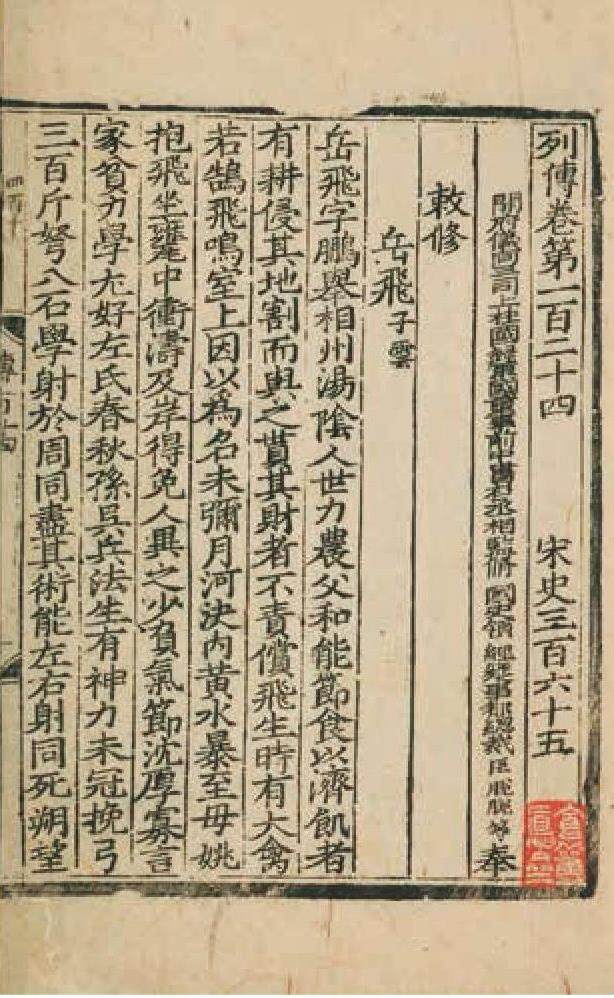 列傳卷第一百二十四 宋史三百六十五
開府儀同三司上柱國錄軍國重事前中書右丞相監修國史領經筵事都總裁臣脫脫等奉
敕修
岳飛子雲
岳飛字鵬舉相州湯陰人世力農父和能節食以濟飢者
有耕侵其地割而與之貰其財者不責償飛生時有大禽
若鵠飛鳴室上因以爲名未彌月河決內黃水暴至母姚
抱飛坐甕中衝濤及岸得免人異之少負氣節沈厚寡言
家貧力學尤好左氏春秋孫吳兵法生有神力未冠挽弓
三百斤弩八石學射於周同盡其術能左右射同死朔望